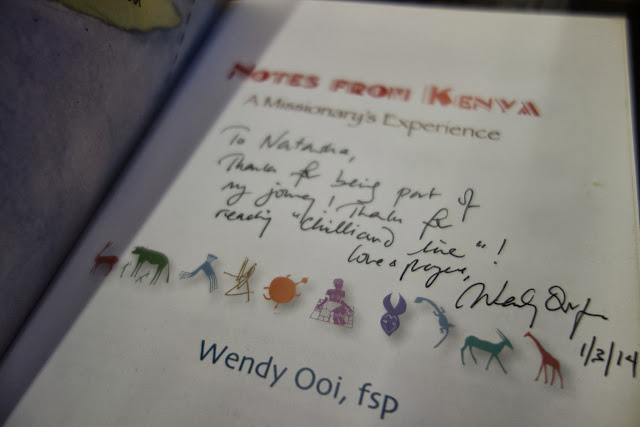 NOTES FROM KENYA
A Missionary's Experience
To Natasha,
Thanks for being part of
my journey! Thanks for
reading "Chilli and lime"!
Love & prayers,
Wendy Ooi, fsp
1/3/14
Wendy Ooi, fsp